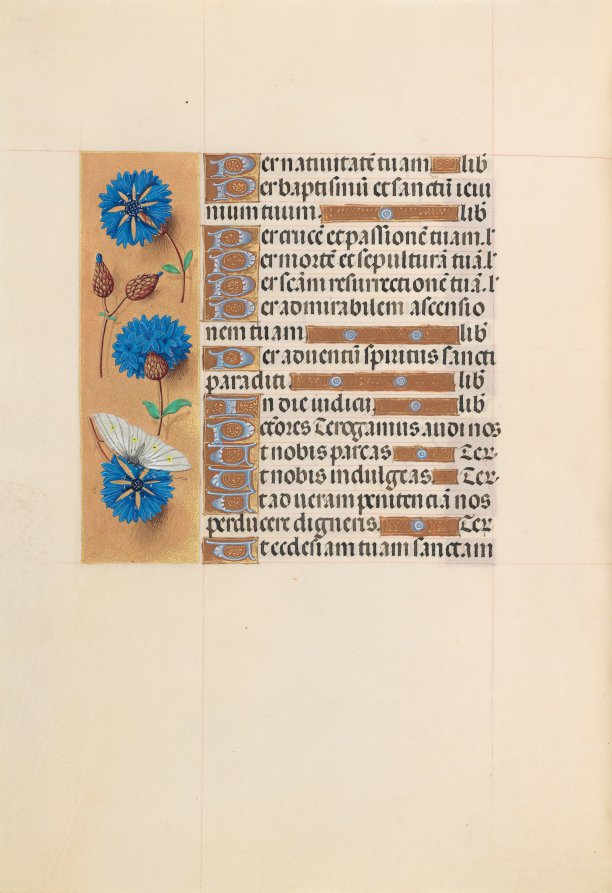 Per natiuitatē tuam lib̄
Per baptismū et sanctū ieiu
nium tuum. lib̄
Per crucē et passionē tuam. l'
Per mortē et sepulturā tuā. l'
Per scām resurrectionē tuā. l'
Per admirabilem ascensio
nem tuam lib̄
Per aduentū spiritus sancti
paracliti. lib̄
In die iudicii. lib̄
Peccōres Te rogamus audi nos
Ut nobis parcas Te r.
Ut nobis indulgeas. Te r.
Ut ad ueram penitenciā nos
perducere digneris. Te r.
Ut ecclesiam tuam sanctam